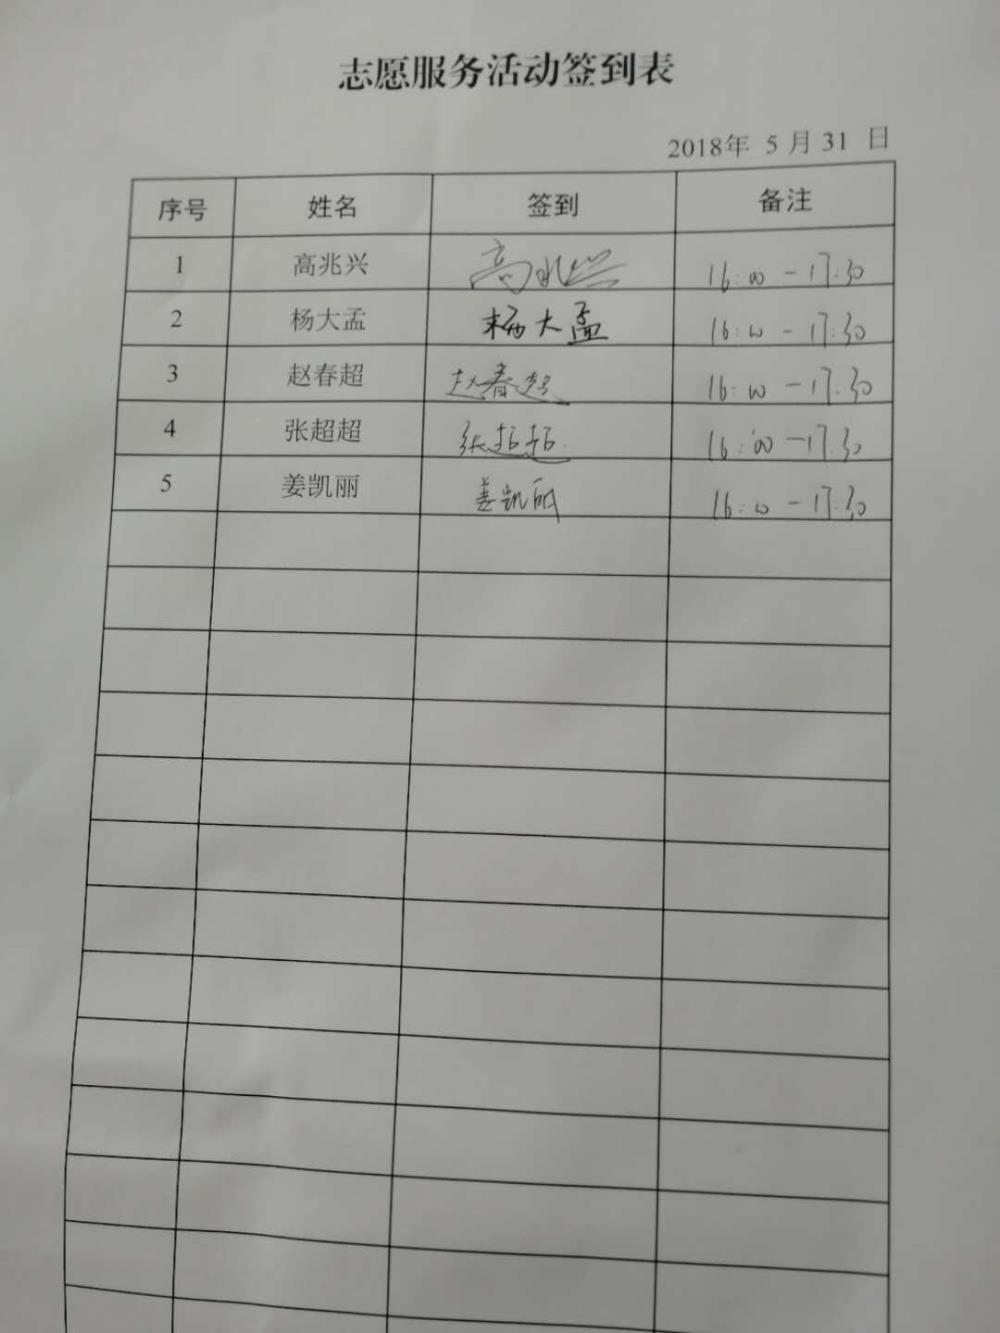 志愿服务活动签到表
2018年 5 月 31 日
序号 姓名 签到 备注
1 高兆兴 高兆兴 16:00 - 17:30
2 杨大孟 杨大孟 16:00 - 17:30
3 赵春超 赵春超 16:00 - 17:30
4 张超超 张超超 16:00 - 17:30
5 姜凯丽 姜凯丽 16:00 - 17:30